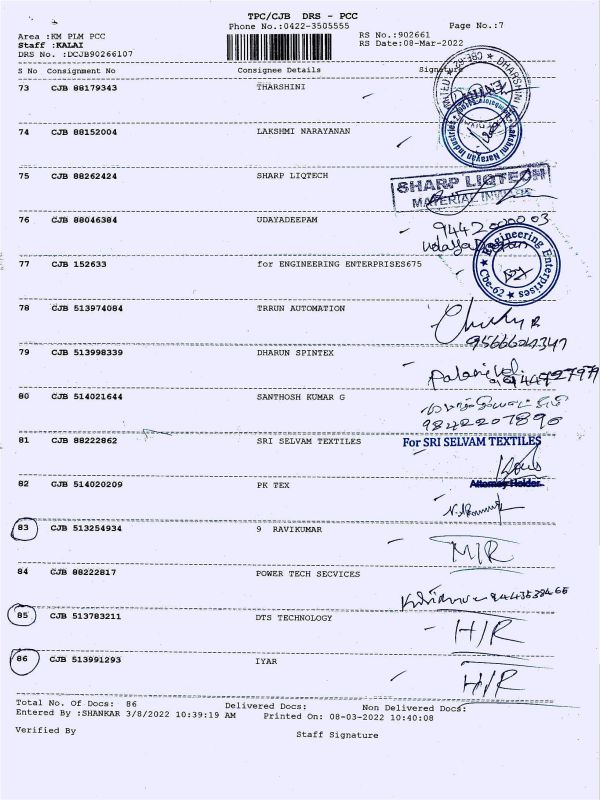 TPC/CJB DRS - PCC
Phone No.:0422-3505555 Page No.:7
Area :KM PLM PCC RS No.:902661
Staff :KALAI RS Date:08-Mar-2022
DRS No. :DCJB90266107
S No Consignment No Consignee Details Signature
73 CJB 88179343 THARSHINI
DHARSHINI
74 CJB 88152004 LAKSHMI NARAYANAN
Lakshmi Narayan Industries
75 CJB 88262424 SHARP LIQTECH
SHARP LIQTECH
MATERIAL INWARD
76 CJB 88046384 UDAYADEEPAM
77 CJB 152633 for ENGINEERING ENTERPRISES675
Engineering Enterprises
Cbe-62
78 CJB 513974084 TRRUN AUTOMATION
79 CJB 513998339 DHARUN SPINTEX
80 CJB 514021644 SANTHOSH KUMAR G
9842207890
81 CJB 88222862 SRI SELVAM TEXTILES For SRI SELVAM TEXTILES
Attorney Holder
82 CJB 514020209 PK TEX
83 CJB 513254934 9 RAVIKUMAR M/R
84 CJB 88222817 POWER TECH SECVICES
85 CJB 513783211 DTS TECHNOLOGY H/R
86 CJB 513991293 IYAR H/R
Total No. Of Docs: 86 Delivered Docs: Non Delivered Docs:
Entered By :SHANKAR 3/8/2022 10:39:19 AM Printed On: 08-03-2022 10:40:08
Verified By Staff Signature